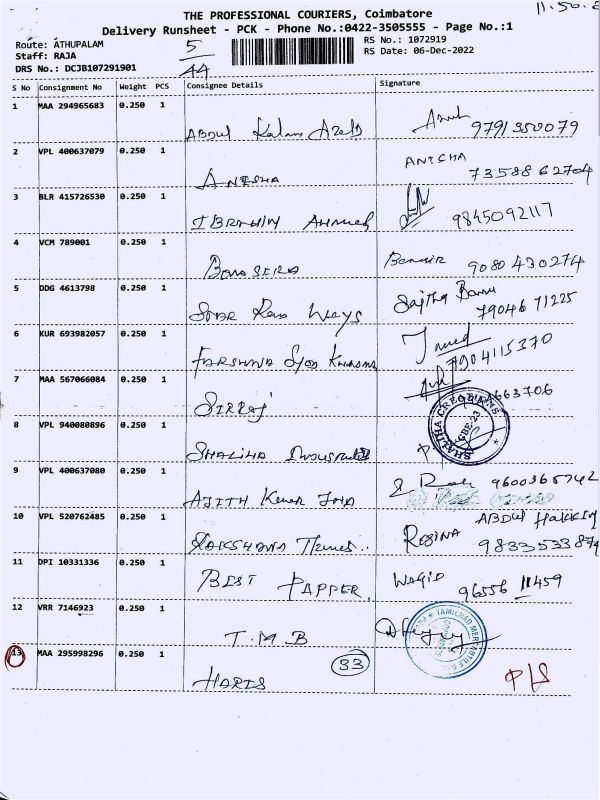 THE PROFESSIONAL COURIERS, Coimbatore
Delivery Runsheet - PCK - Phone No.:0422-3505555 - Page No.:1
Route: ATHUPALAM
Staff: RAJA
DRS No.: DCJB107291901
5
44
RS No.: 1072919
RS Date: 06-Dec-2022
S No Consignment No Weight PCS Consignee Details Signature
1 MAA 294965683 0.250 1 ABDUL Kalam AZAD 9791350079
2 VPL 400637079 0.250 1 ANISHA ANISHA 7358862704
3 BLR 415726530 0.250 1 IBRAHIM AHMED 9845092117
4 VCM 789001 0.250 1 9080430274
5 DDG 4613798 0.250 1 STAR Ways Sajitha Banu 79046 71225
6 KUR 693982057 0.250 1 FARSHANA Syed 7904115370
7 MAA 567066084 0.250 1 SIRRAJ
8 VPL 940080896 0.250 1 SHALIHA SHALIHA CREATIONS CBE-23
9 VPL 400637080 0.250 1 AJITH Kumar JHA 9600365742
10 VPL 520762485 0.250 1 RAKSHANA ROSINA ABDUL HAKKIM
11 DPI 10331336 0.250 1 BEST PAPPER WAGID 96556 11459
12 VRR 7146923 0.250 1 T.M.B TAMILNAD MERCANTILE
13 MAA 295998296 0.250 1 HARIS 33